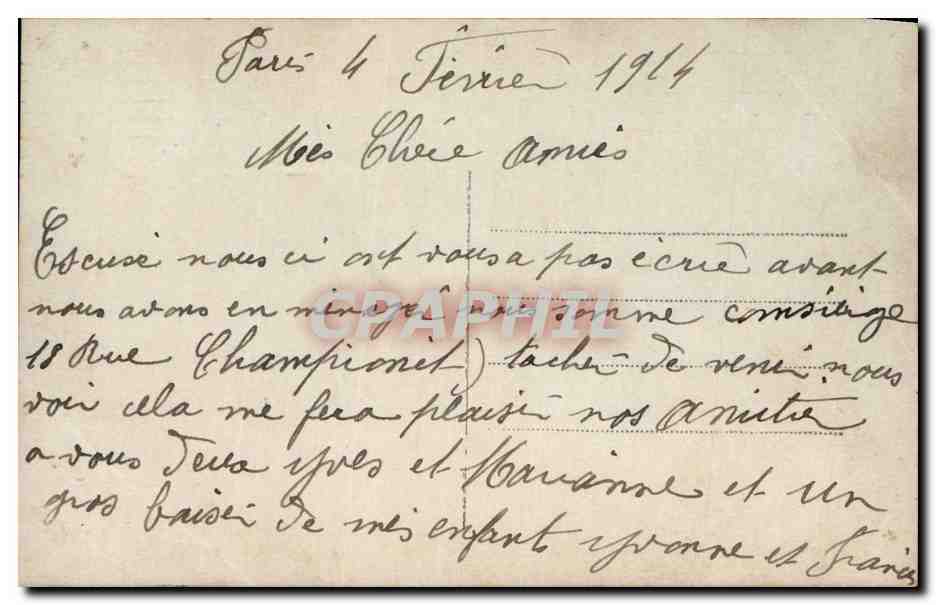 Paris 4 Février 1914
Mes Chère amies
Escusé nous ci ont vous a pas écrie avant
nous avons en minagé nous somme comsierge
18 Rue Championet) tacher de venir nous
voir cela me fera plaisir nos amitier
a vous deux Yves et Marianne et un
gros baiser de mes enfants Yvonne et Francis
CPAPHIL